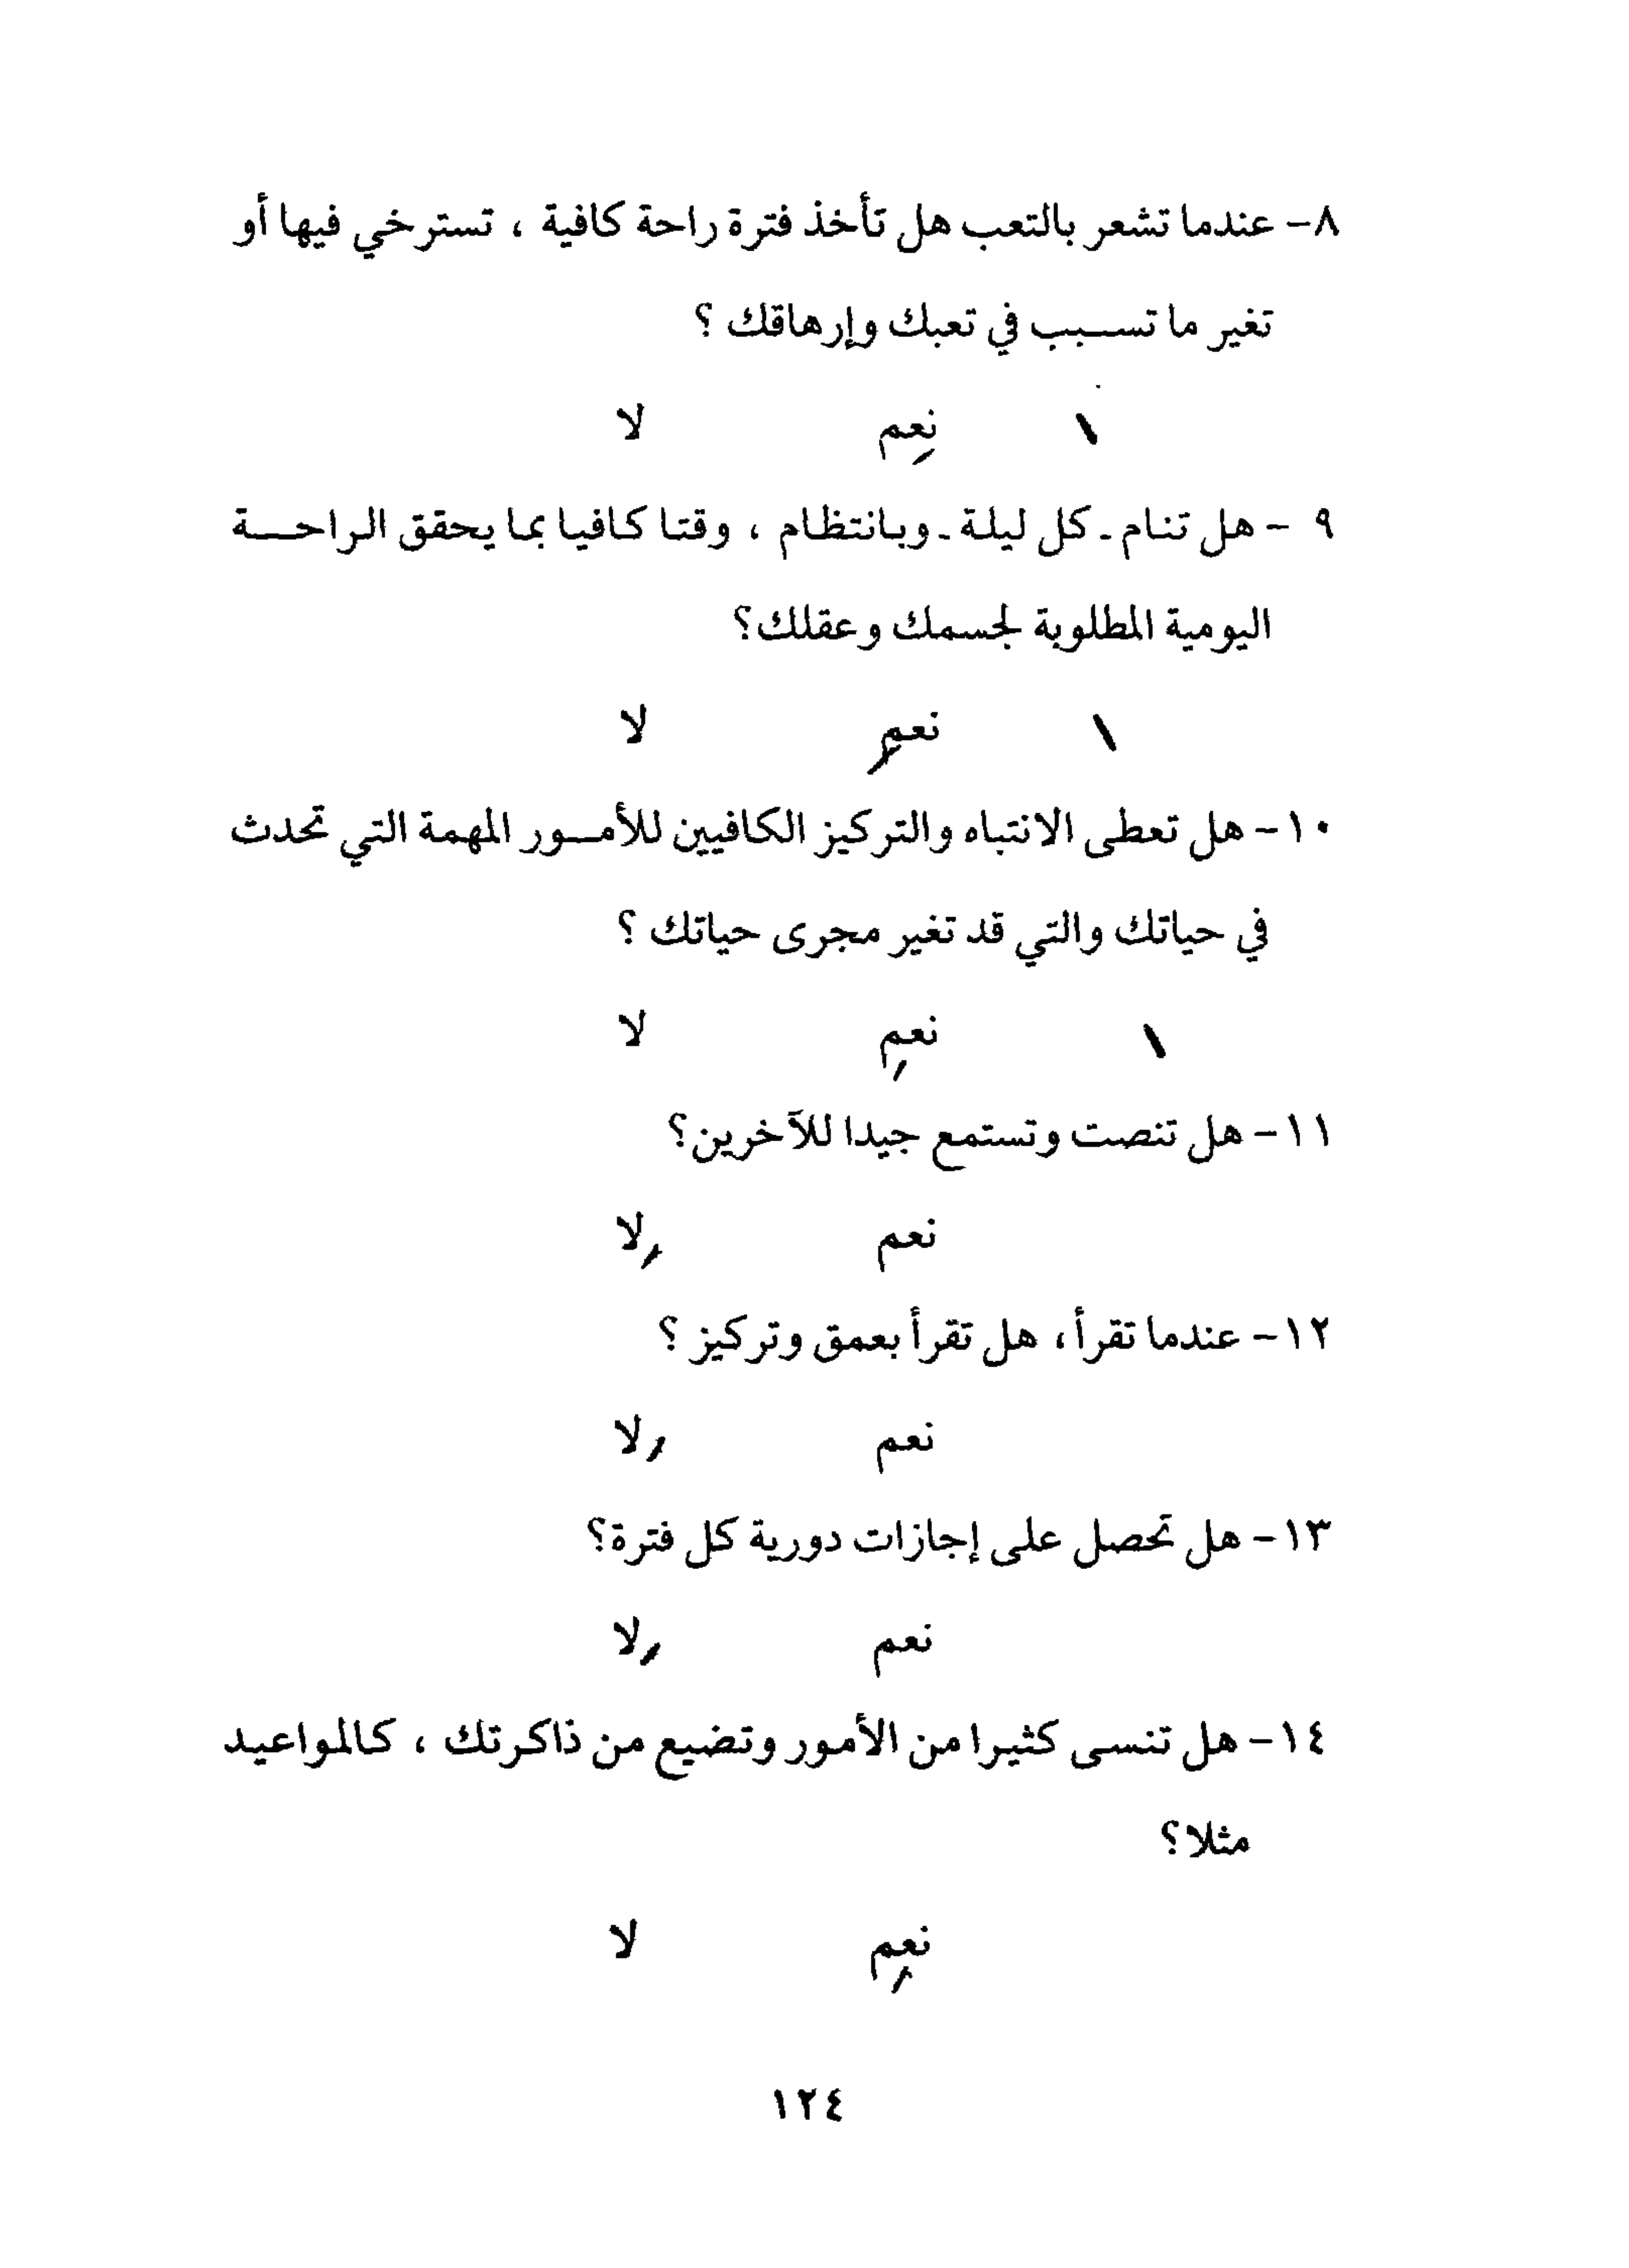 ٨- عندما تشعر بالتعب هل تأخذ فترة راحة كافية ، تسترخي فيها أو
تغير ما تسبب في تعبك وإرهاقك ؟
١ نعم لا
٩ - هل تنام - كل ليلة - وبانتظام ، وقتا كافيا بما يحقق الراحة
اليومية المطلوبة لجسمك وعقلك؟
١ نعم لا
١٠- هل تعطى الانتباه والتركيز الكافيين للأمور المهمة التي تحدث
في حياتك والتي قد تغير مجرى حياتك ؟
١ نعم لا
١١- هل تنصت وتستمع جيدا للآخرين؟
نعم لا
١٢- عندما تقرأ ، هل تقرأ بعمق وتركيز ؟
نعم لا
١٣- هل تحصل على إجازات دورية كل فترة؟
نعم لا
١٤- هل تنسى كثيرا من الأمور وتضيع من ذاكرتك ، كالمواعيد
مثلا؟
نعم لا
١٢٤